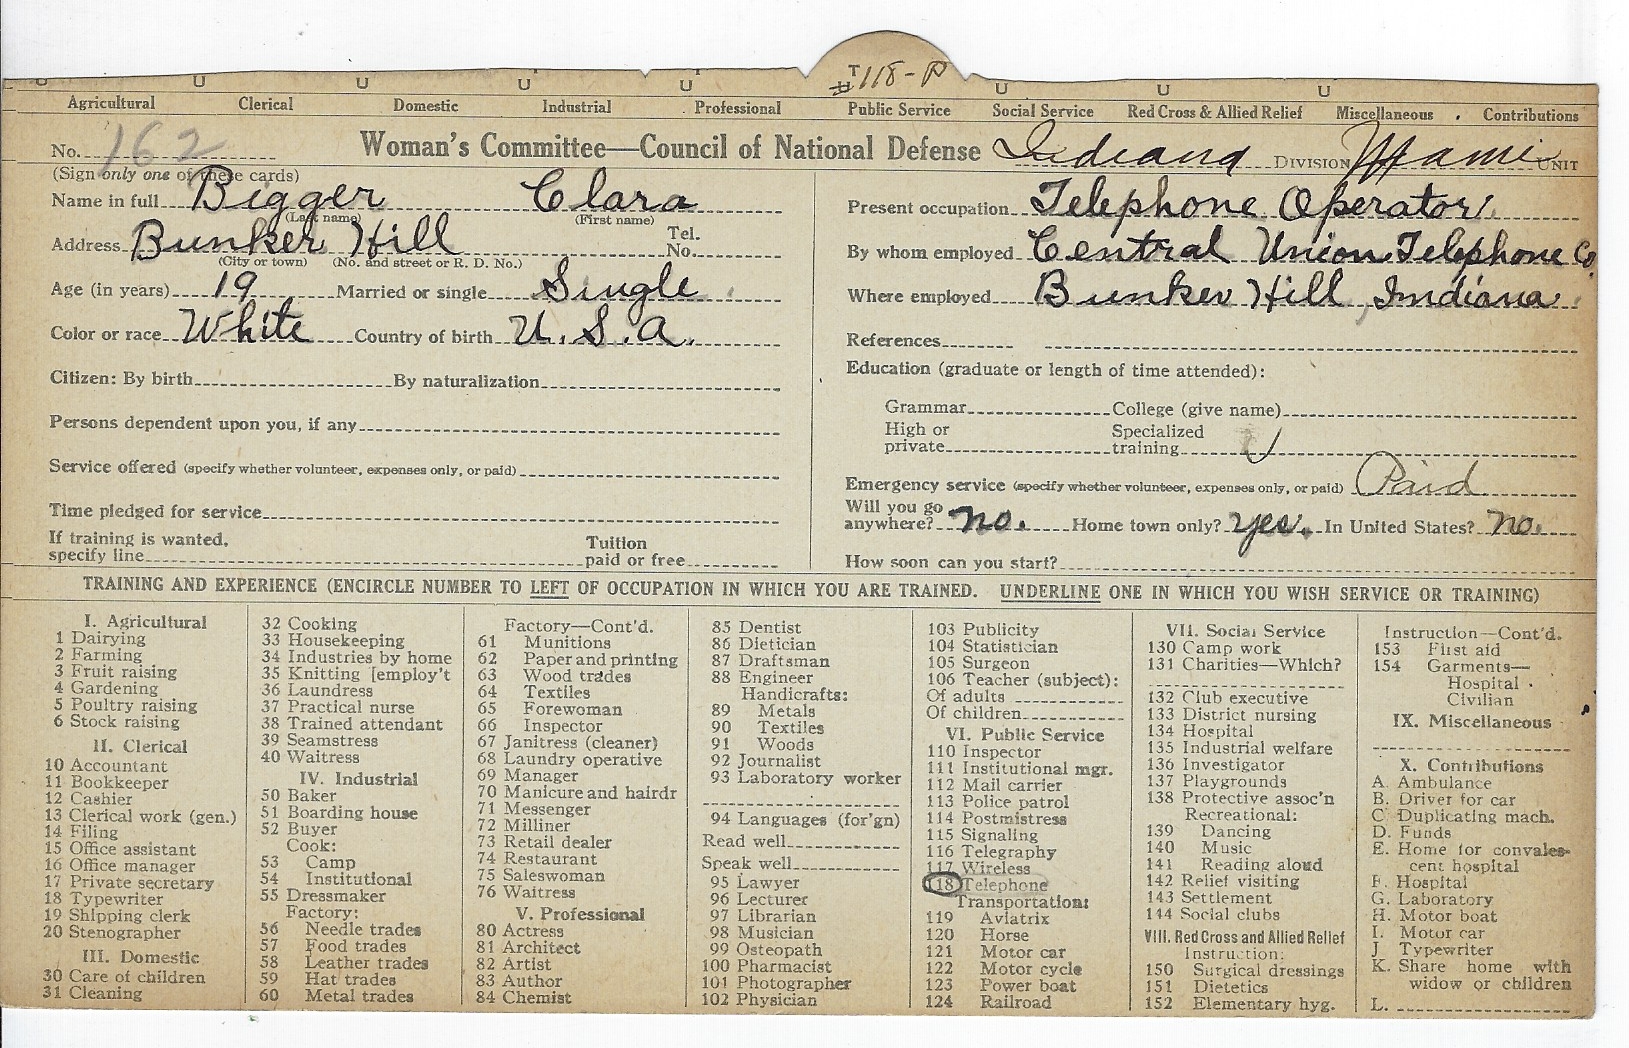 T
# 118-P
Agricultural Clerical Domestic Industrial Professional Public Service Social Service Red Cross & Allied Relief Miscellaneous Contributions
No. 162 Woman's Committee—Council of National Defense Indiana DIVISION Miami UNIT
(Sign only one of these cards)
Name in full Bigger Clara
(Last name) (First name)
Address Bunker Hill Tel. No.
(City or town) (No. and street or R. D. No.)
Age (in years) 19 Married or single Single
Color or race White Country of birth U. S. A.
Citizen: By birth By naturalization
Persons dependent upon you, if any
Service offered (specify whether volunteer, expenses only, or paid)
Time pledged for service
If training is wanted, specify line Tuition paid or free
Present occupation Telephone Operator
By whom employed Central Union Telephone Co
Where employed Bunker Hill, Indiana
References
Education (graduate or length of time attended):
Grammar College (give name)
High or private Specialized training ✓
Emergency service (specify whether volunteer, expenses only, or paid) Paid
Will you go anywhere? no. Home town only? yes. In United States? no.
How soon can you start?
TRAINING AND EXPERIENCE (ENCIRCLE NUMBER TO LEFT OF OCCUPATION IN WHICH YOU ARE TRAINED. UNDERLINE ONE IN WHICH YOU WISH SERVICE OR TRAINING)
I. Agricultural
1 Dairying
2 Farming
3 Fruit raising
4 Gardening
5 Poultry raising
6 Stock raising
II. Clerical
10 Accountant
11 Bookkeeper
12 Cashier
13 Clerical work (gen.)
14 Filing
15 Office assistant
16 Office manager
17 Private secretary
18 Typewriter
19 Shipping clerk
20 Stenographer
III. Domestic
30 Care of children
31 Cleaning
32 Cooking
33 Housekeeping
34 Industries by home
35 Knitting [employ't
36 Laundress
37 Practical nurse
38 Trained attendant
39 Seamstress
40 Waitress
IV. Industrial
50 Baker
51 Boarding house
52 Buyer
Cook:
53 Camp
54 Institutional
55 Dressmaker
Factory:
56 Needle trades
57 Food trades
58 Leather trades
59 Hat trades
60 Metal trades
Factory—Cont'd.
61 Munitions
62 Paper and printing
63 Wood trades
64 Textiles
65 Forewoman
66 Inspector
67 Janitress (cleaner)
68 Laundry operative
69 Manager
70 Manicure and hairdr
71 Messenger
72 Milliner
73 Retail dealer
74 Restaurant
75 Saleswoman
76 Waitress
V. Professional
80 Actress
81 Architect
82 Artist
83 Author
84 Chemist
85 Dentist
86 Dietician
87 Draftsman
88 Engineer
Handicrafts:
89 Metals
90 Textiles
91 Woods
92 Journalist
93 Laboratory worker
94 Languages (for'gn)
Read well
Speak well
95 Lawyer
96 Lecturer
97 Librarian
98 Musician
99 Osteopath
100 Pharmacist
101 Photographer
102 Physician
103 Publicity
104 Statistician
105 Surgeon
106 Teacher (subject):
Of adults
Of children
VI. Public Service
110 Inspector
111 Institutional mgr.
112 Mail carrier
113 Police patrol
114 Postmistress
115 Signaling
116 Telegraphy
117 Wireless
118 Telephone
Transportation:
119 Aviatrix
120 Horse
121 Motor car
122 Motor cycle
123 Power boat
124 Railroad
VII. Social Service
130 Camp work
131 Charities—Which?
132 Club executive
133 District nursing
134 Hospital
135 Industrial welfare
136 Investigator
137 Playgrounds
138 Protective assoc'n
Recreational:
139 Dancing
140 Music
141 Reading aloud
142 Relief visiting
143 Settlement
144 Social clubs
VIII. Red Cross and Allied Relief
Instruction:
150 Surgical dressings
151 Dietetics
152 Elementary hyg.
Instruction—Cont'd.
153 First aid
154 Garments—
Hospital
Civilian
IX. Miscellaneous
X. Contributions
A. Ambulance
B. Driver for car
C. Duplicating mach.
D. Funds
E. Home for convales-
cent hospital
F. Hospital
G. Laboratory
H. Motor boat
I. Motor car
J. Typewriter
K. Share home with
widow or children
L.